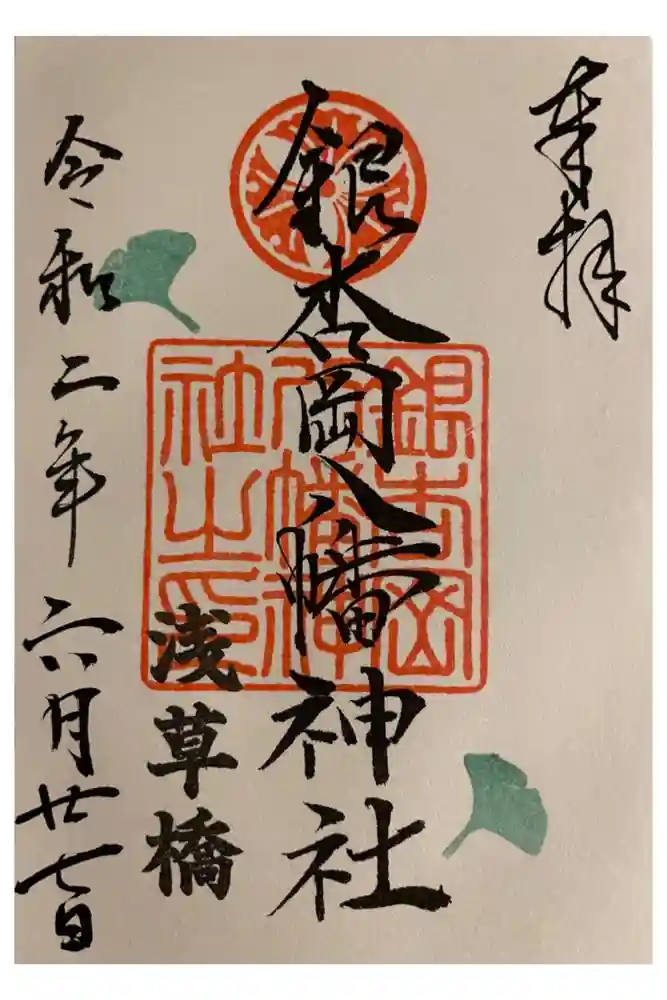 奉拝
銀杏岡八幡神社
銀杏岡八幡神社之印
浅草橋
令和二年六月廿七日